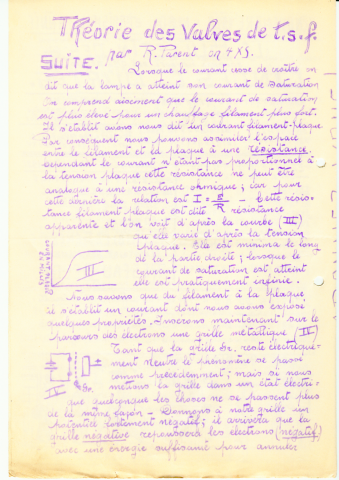 Théorie des Valves de t.s.f.
SUITE. par R. Parent on 4XS.
Lorsque le courant cesse de croître on
dit que la lampe a atteint son courant de saturation
On comprend aisement que le courant de saturation
est plus élevé pour un chauffage filament plus fort.
Il s'établit avons nous dit un courant filament-plaque
Par conséquent nous pouvons assimiler l'espace
entre le filament et la plaque à une résistance.
Cependant le courant n'étant pas proportionnel à
la tension plaque cette résistance ne peut être
analogue à une résistance ohmique; car pour
cette dernière la relation est I = E/R - Cette résis-
tance filament plaque est dite résistance
apparente et l'on voit d'après la courbe (III)
qu'elle varie d'après la tension
plaque. Elle est minima le long
de la partie droite; lorsque le
courant de saturation est atteint
elle est pratiquement infinie.
III
Nous savons que du filament à la plaque
il s'établit un courant dont nous avons exposé
quelques propriétés. Inserons maintenant sur le
parcours des electrons une grille métallique (IV)
Tant que la grille Gr. reste électrique-
ment neutre le phénomène se passe
comme precedemment; mais si nous
mettons la grille dans un état électri-
Gr.
que quelconque les choses ne se passent plus
de la même façon - Donnons à notre grille un
potentiel fortement negatif; il arrivera que la
grille negative repoussera les électrons (negatif)
avec une énergie suffisant pour annuler